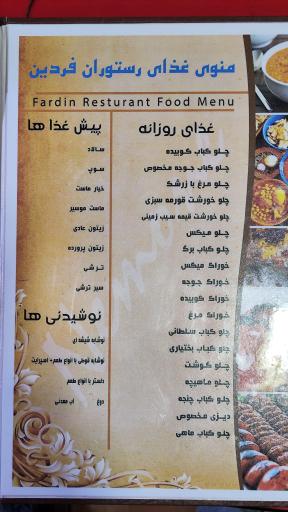 منوی غذای رستوران فردین
Fardin Resturant Food Menu
غذای روزانه
چلو کباب کوبیده
چلو کباب جوجه مخصوص
چلو مرغ با زرشک
چلو خورشت قورمه سبزی
چلو خورشت قیمه سیب زمینی
چلو میکس
چلو کباب برگ
خوراک میکس
خوراک جوجه
خوراک کوبیده
خوراک مرغ
چلو کباب سلطانی
چلو کباب بختیاری
چلو گوشت
چلو ماهیچه
چلو کباب چنجه
دیزی مخصوص
چلو کباب ماهی
پیش غذا ها
سالاد
سوپ
خیار ماست
ماست موسیر
زیتون عادی
زیتون پرورده
ترشی
سیر ترشی
نوشیدنی ها
نوشابه شیشه ای
نوشابه قوطی با انواع طعم+ اسپرایت
دلستر با انواع طعم
دوغ آب معدنی